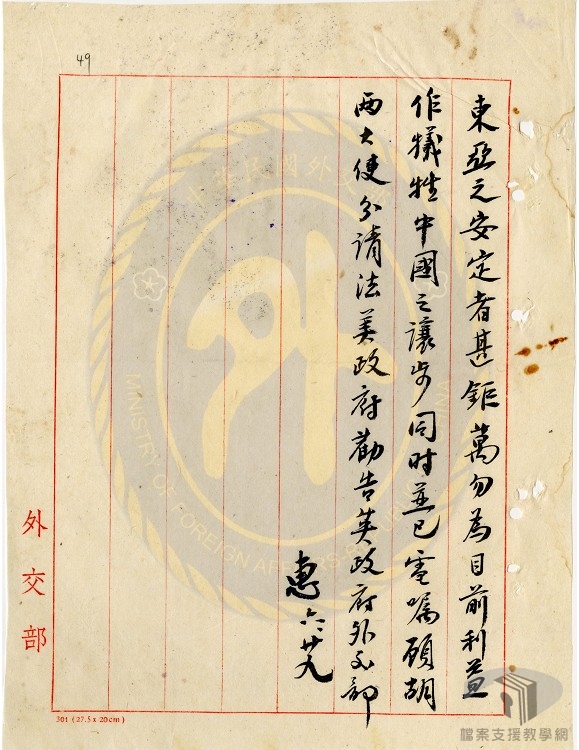 49
東亞之安定者甚鉅萬勿為目前利益
作犧牲中國之讓步同時並已電囑顧胡
兩大使分請法美政府勸告英政府外交部
惠 六、廿九
外交部
301 (27.5 x 20cm)
中華民國外交部
MINISTRY OF FOREIGN AFFAIRS
檔案支援教學網